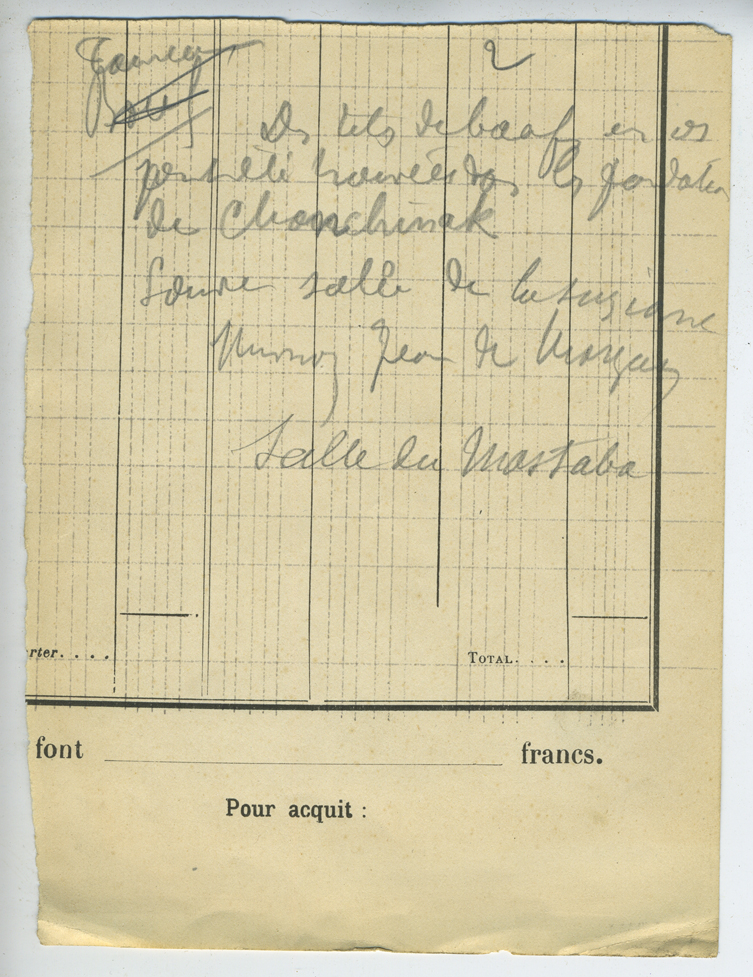 2
Des têts de boeuf en os
ont été trouvées dans les fondation
de Chouchinak
Louvre salle de la susiane
Jean de Morgan
Salle du Mastaba
rter. . . . TOTAL. . . .
font francs.
Pour acquit :